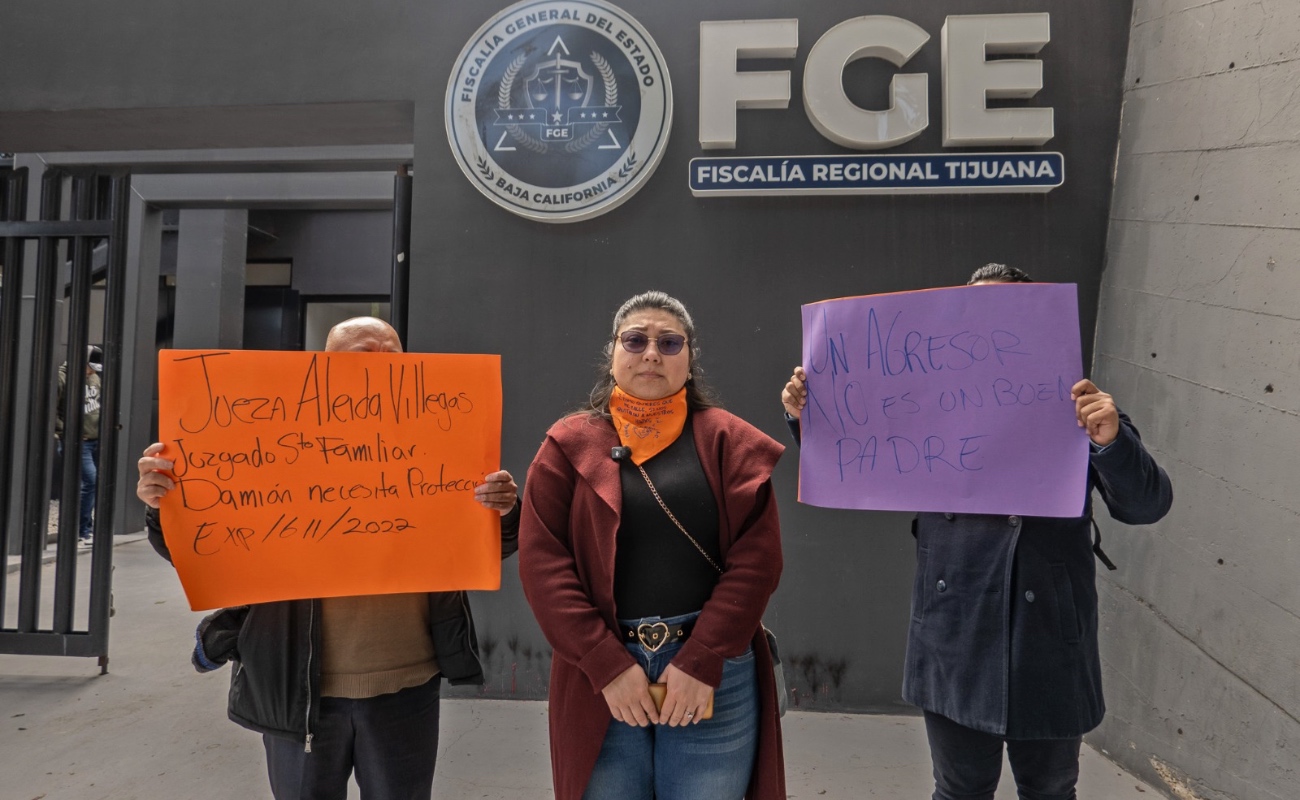 FISCALÍA GENERAL DEL ESTADO
FGE
BAJA CALIFORNIA
FGE
FISCALÍA REGIONAL TIJUANA
Jueza Aleida Villegas
Juzgado 5to Familiar.
Damián necesita Protecci
Exp/1611/2022
UN AGRESOR
NO ES UN BUEN
PADRE